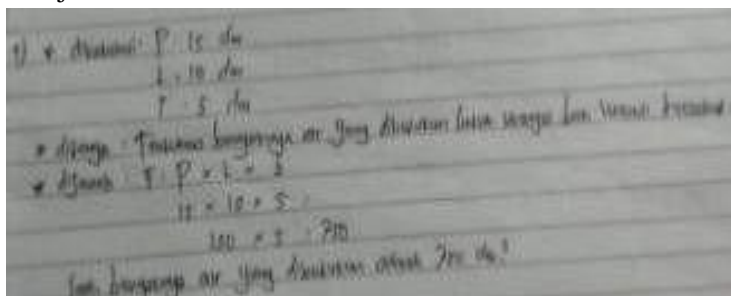 1) * diketahui: P 15 dm
L. 10 dm
T. 5 dm
* ditanya: Tentukan banyaknya air yang dibutuhkan untuk
* dijawab: P × L ×
15 × 10 × 5
150 × 5 : 750
banyaknya air yang dibutuhkan adalah 750